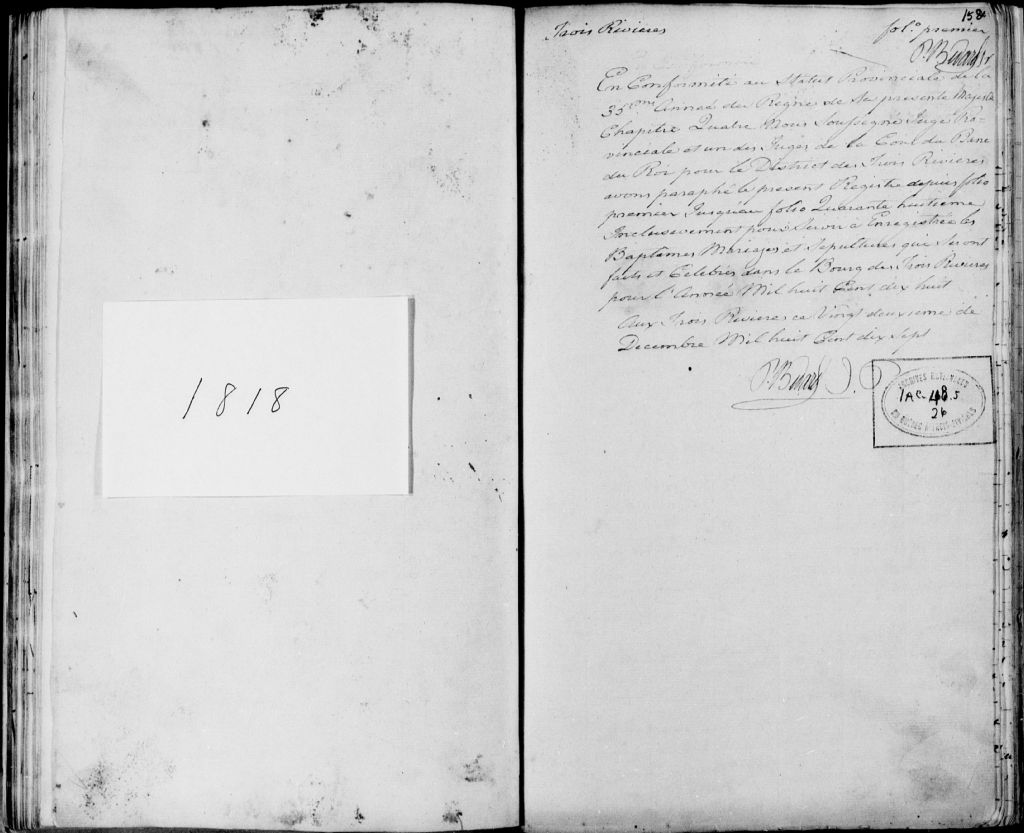 1818
158
Trois Rivieres
fol.º premier
P. Bedard J.P
En Conformité au Statut Provinciale de la
35eme Année du Regne de Sa presente Majesté
Chapitre Quatre Nous Soussigné Juge Pro-
vinciale et un des Juges de la Cour du Banc
du Roi pour le District des Trois Rivieres
avons paraphé le present Registre depuis folio
premier Jusqu'au folio Quarante huitieme
Inclusivement pour Servir a Enregistrée les
Baptemes Mariages et Sepultures qui Seront
faits et Celebrés dans le Bourg des Trois Rivieres
pour l'Année Mil huit Cent dix huit
Aux Trois Rivieres ce Vingt deuxieme de
Decembre Mil huit Cent dix Sept
P. Bedard J. P.
ARCHIVES NATIONALES
1AC-48.5
26
DU QUÉBEC À TROIS-RIVIÈRES